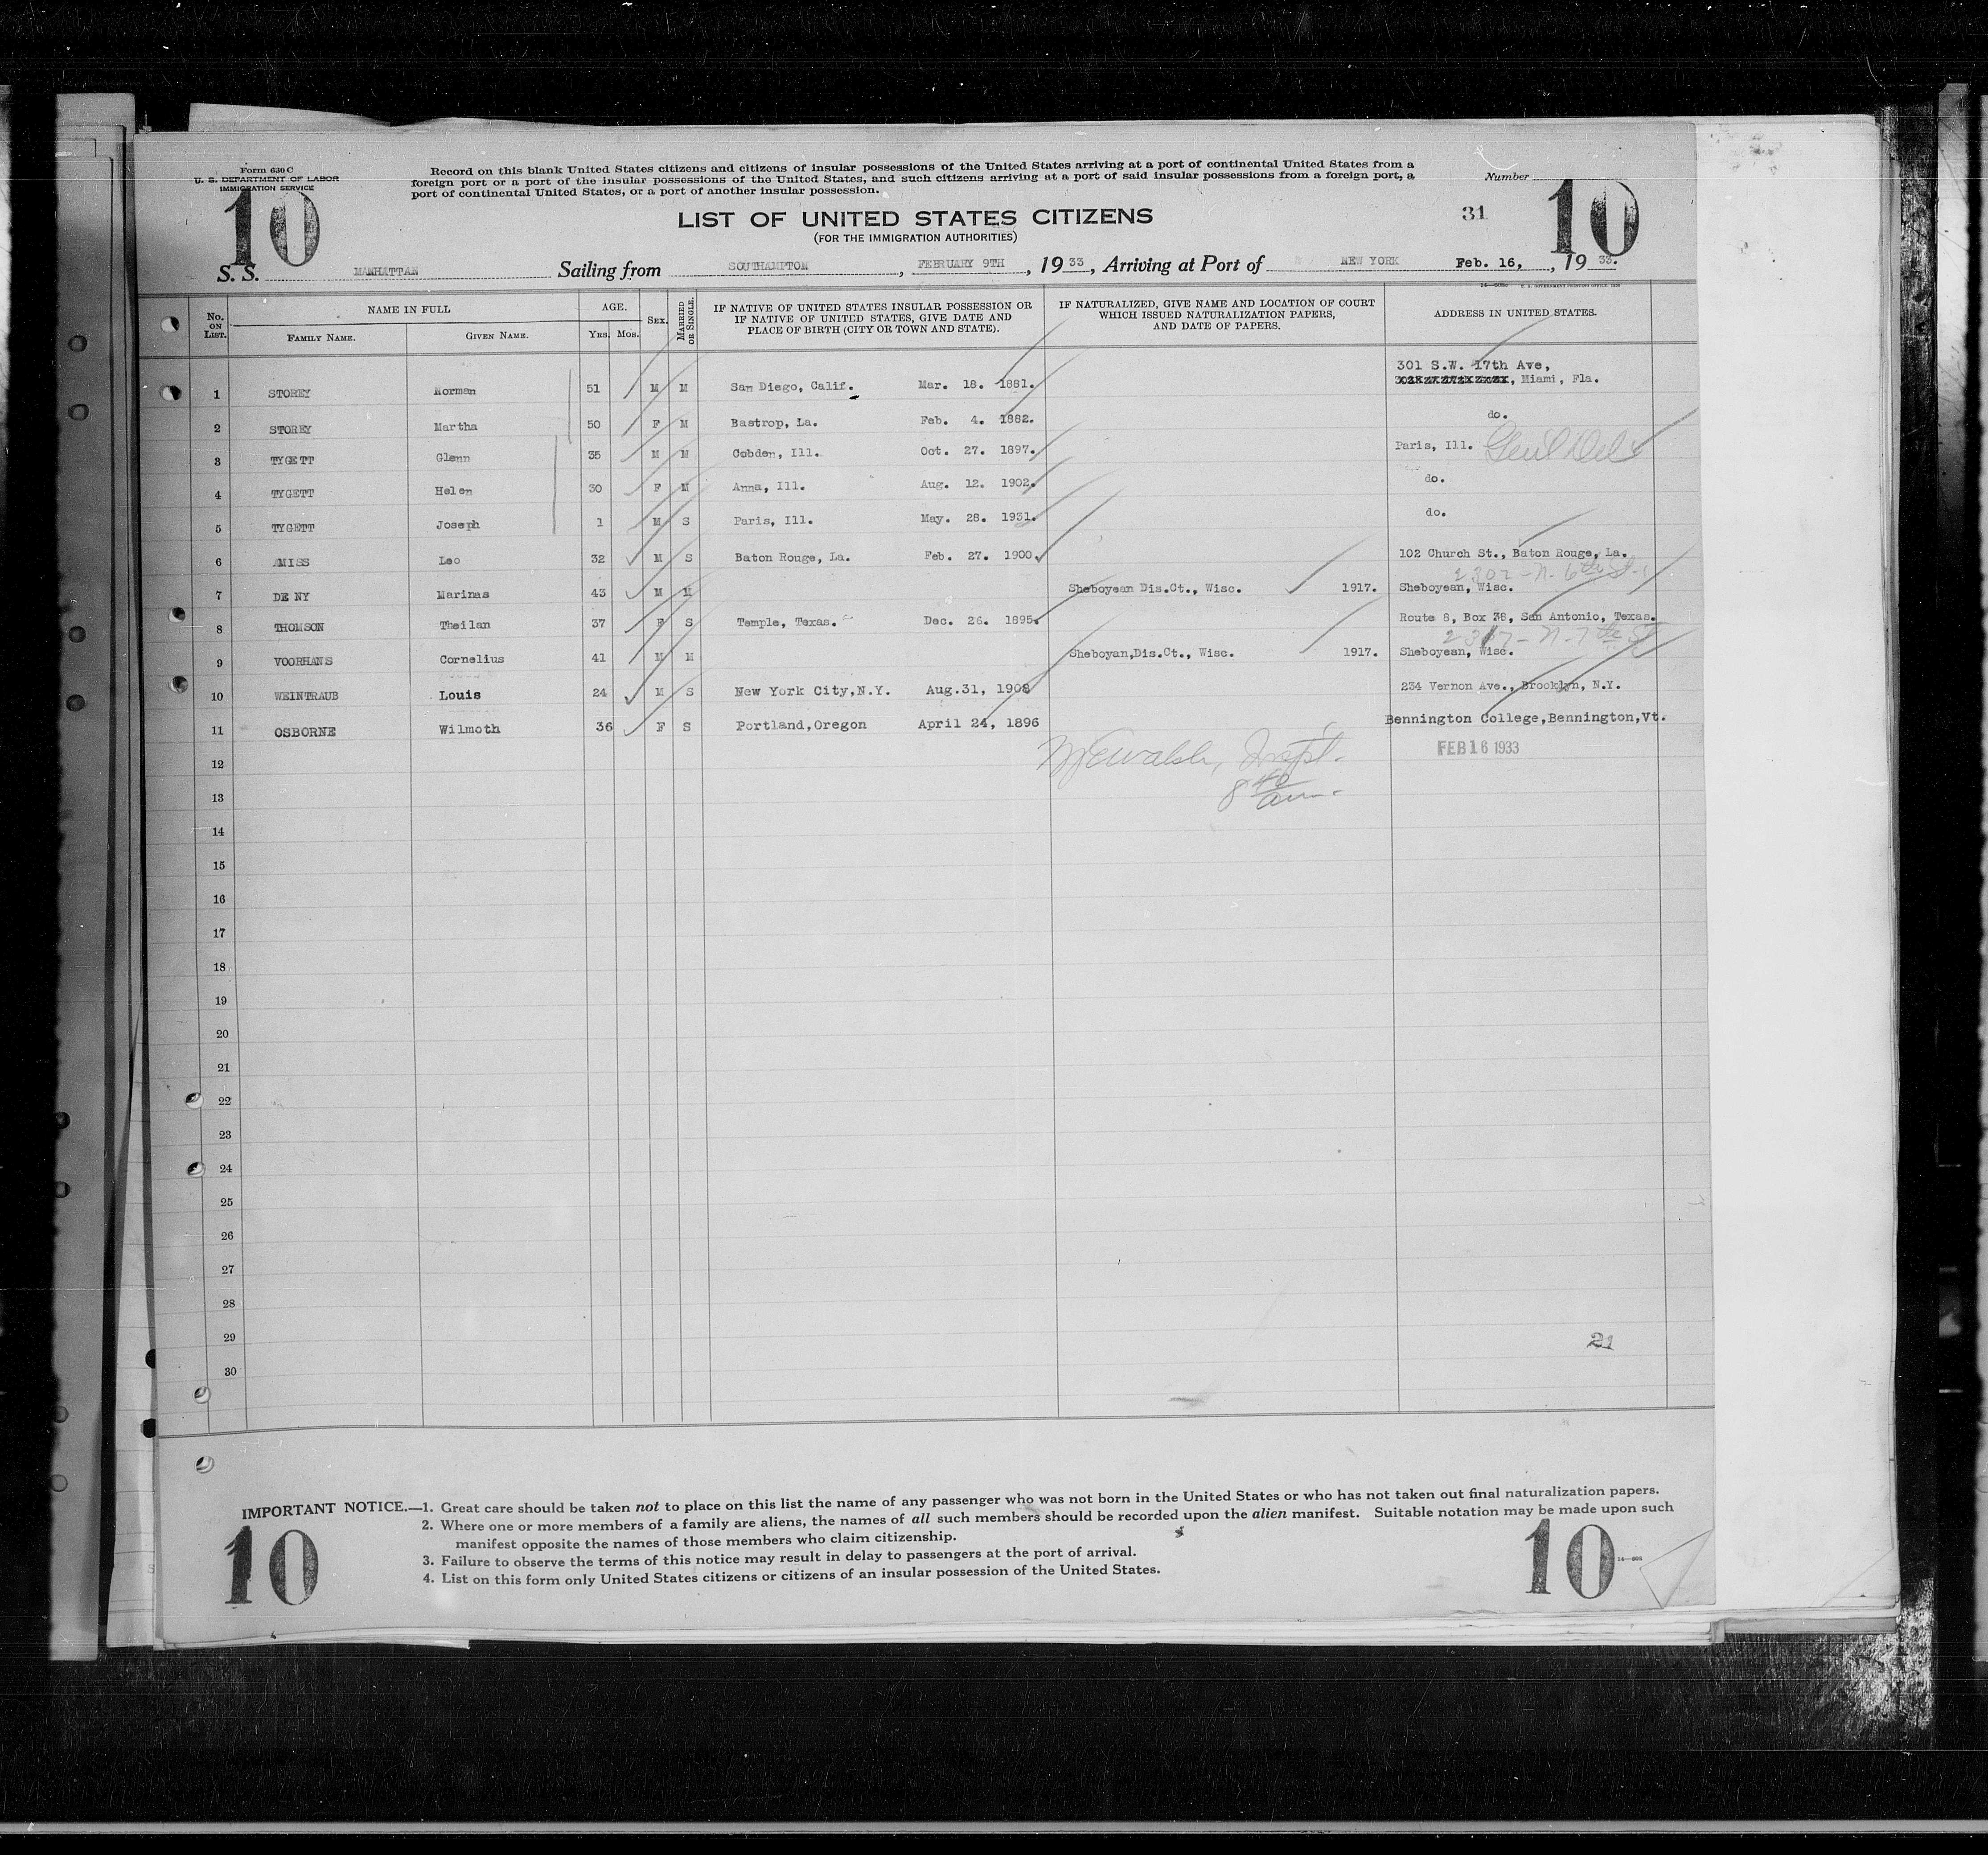 Form 630 C
U. S. DEPARTMENT OF LABOR
IMMIGRATION SERVICE
10
Record on this blank United States citizens and citizens of insular possessions of the United States arriving at a port of continental United States from a
foreign port or a port of the insular possessions of the United States, and such citizens arriving at a port of said insular possessions from a foreign port, a
port of continental United States, or a port of another insular possession.
Number
10
LIST OF UNITED STATES CITIZENS
31
(FOR THE IMMIGRATION AUTHORITIES)
S. S. MANHATTAN Sailing from SOUTHAMPTON, FEBRUARY 9TH, 1933, Arriving at Port of NEW YORK Feb. 16, , 1933.
No. ON LIST. NAME IN FULL FAMILY NAME. GIVEN NAME. AGE. Yrs. Mos. SEX. MARRIED OR SINGLE. IF NATIVE OF UNITED STATES INSULAR POSSESSION OR IF NATIVE OF UNITED STATES, GIVE DATE AND PLACE OF BIRTH (CITY OR TOWN AND STATE). IF NATURALIZED, GIVE NAME AND LOCATION OF COURT WHICH ISSUED NATURALIZATION PAPERS, AND DATE OF PAPERS. ADDRESS IN UNITED STATES.
301 S.W. 17th Ave,
1 STOREY Norman 51 M M San Diego, Calif. Mar. 18. 1881. , Miami, Fla.
2 STOREY Martha 50 F M Bastrop, La. Feb. 4. 1882. do.
3 TYGETT Glenn 35 M M Cobden, Ill. Oct. 27. 1897. Paris, Ill. Gen'l Del
4 TYGETT Helen 30 F M Anna, Ill. Aug. 12. 1902. do.
5 TYGETT Joseph 1 M S Paris, Ill. May. 28. 1931. do.
6 AMISS Leo 32 M S Baton Rouge, La. Feb. 27. 1900. 102 Church St., Baton Rouge, La.
2302 - N. 6th St.
7 DE NY Marinas 43 M M Sheboyean Dis.Ct., Wisc. 1917. Sheboyean, Wisc.
8 THOMSON Theilan 37 F S Temple, Texas. Dec. 26. 1895. Route 8, Box 38, San Antonio, Texas.
2317 - N. 7th St
9 VOORHANS Cornelius 41 M M Sheboyan,Dis.Ct., Wisc. 1917. Sheboyean, Wisc.
10 WEINTRAUB Louis 24 M S New York City,N.Y. Aug.31, 1908 234 Vernon Ave., Brooklyn, N.Y.
11 OSBORNE Wilmoth 36 F S Portland,Oregon April 24, 1896 Bennington College,Bennington,Vt.
12 Walsh, Inspt. FEB 16 1933
8 40 am.
13
14
15
16
17
18
19
20
21
22
23
24
25
26
27
28
29
21
30
IMPORTANT NOTICE.—1. Great care should be taken not to place on this list the name of any passenger who was not born in the United States or who has not taken out final naturalization papers.
2. Where one or more members of a family are aliens, the names of all such members should be recorded upon the alien manifest. Suitable notation may be made upon such
manifest opposite the names of those members who claim citizenship.
3. Failure to observe the terms of this notice may result in delay to passengers at the port of arrival.
4. List on this form only United States citizens or citizens of an insular possession of the United States.
10
10